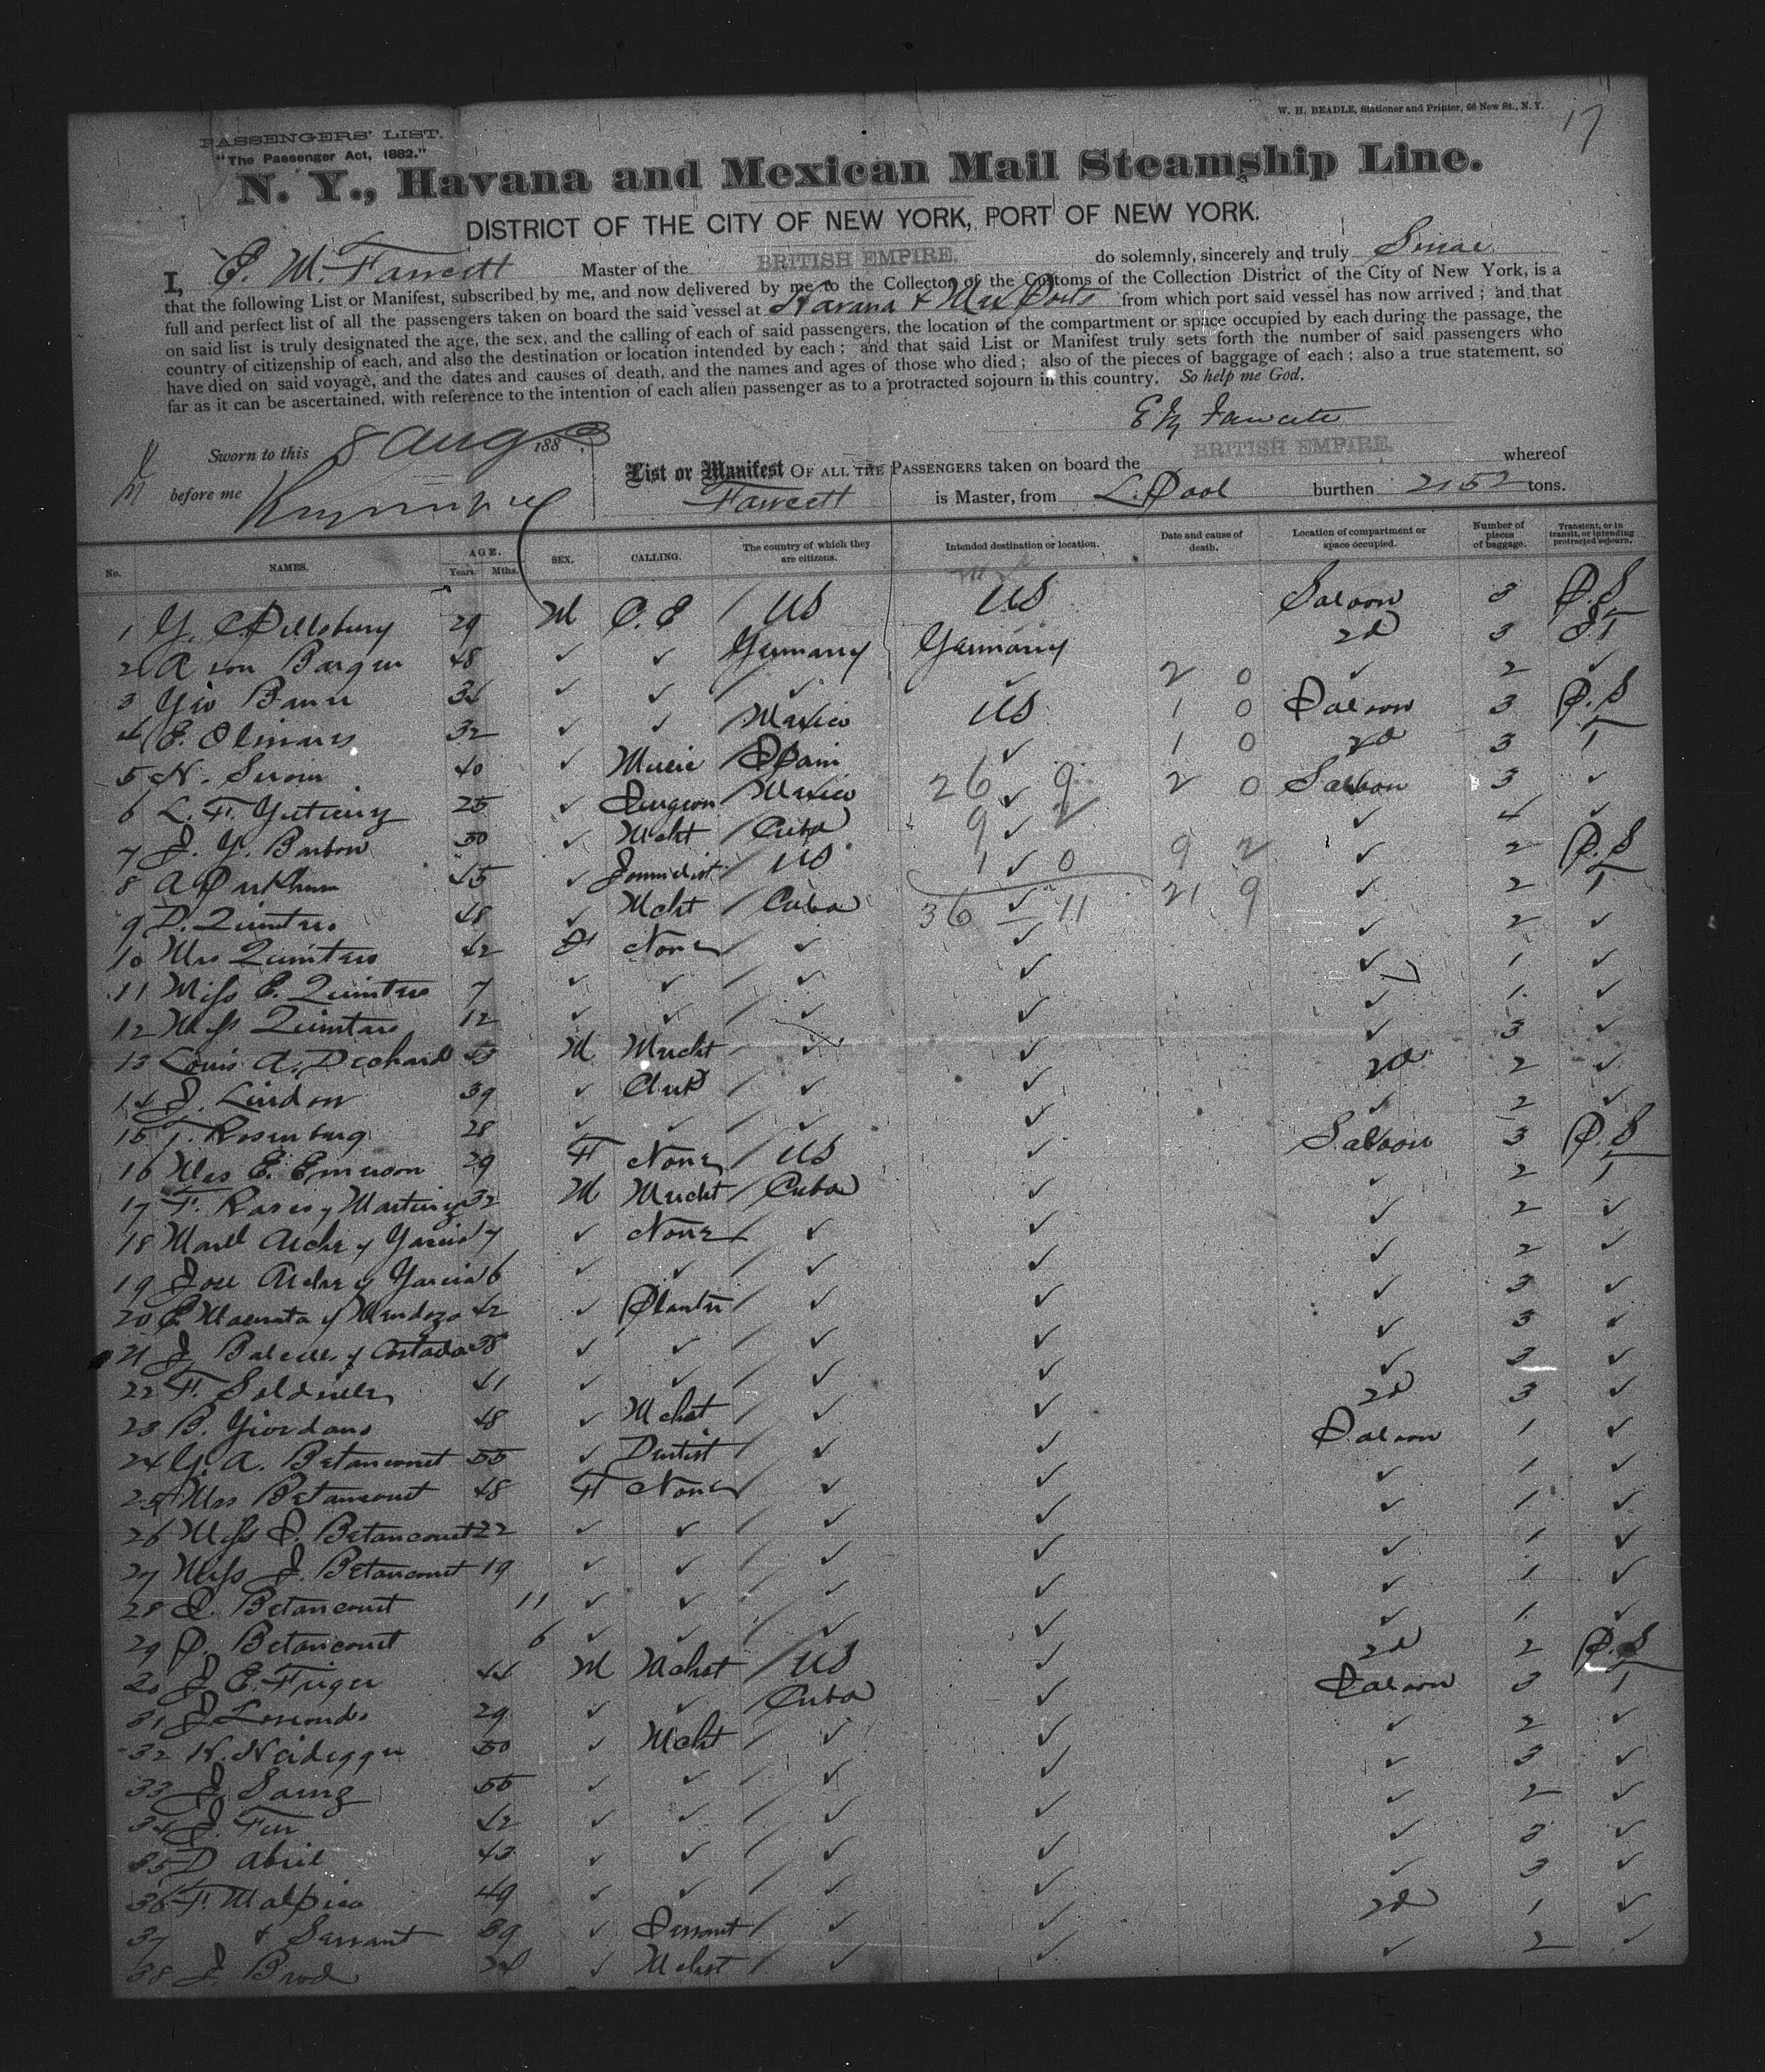 17
W. H. BEADLE, Stationer and Printer, 66 New St., N. Y.
PASSENGERS' LIST.
"The Passenger Act, 1882."
N. Y., Havana and Mexican Mail Steamship Line.
DISTRICT OF THE CITY OF NEW YORK, PORT OF NEW YORK.
I, E. M. Fawcett Master of the BRITISH EMPIRE. do solemnly, sincerely and truly Swear
that the following List or Manifest, subscribed by me, and now delivered by me to the Collector of the Customs of the Collection District of the City of New York, is a
full and perfect list of all the passengers taken on board the said vessel at Havana & Mex Ports from which port said vessel has now arrived; and that
on said list is truly designated the age, the sex, and the calling of each of said passengers, the location of the compartment or space occupied by each during the passage, the
country of citizenship of each, and also the destination or location intended by each; and that said List or Manifest truly sets forth the number of said passengers who
have died on said voyage, and the dates and causes of death, and the names and ages of those who died; also of the pieces of baggage of each; also a true statement, so
far as it can be ascertained, with reference to the intention of each alien passenger as to a protracted sojourn in this country. So help me God.
E M Fawcett
Sworn to this 8 Aug 1883
before me
List or Manifest OF ALL THE PASSENGERS taken on board the BRITISH EMPIRE. whereof
Fawcett is Master, from L. Pool burthen 2152 tons.
No. NAMES. AGE. Years. Mths. SEX. CALLING. The country of which they are citizens. Intended destination or location. Date and cause of death. Location of compartment or space occupied. Number of pieces of baggage. Transient, or in transit, or intending protracted sojourn.
1 G. C Pillsbury 29 M C. E / US US Saloon 3 P. S
2 A von Bargen 48 ✓ ✓ Germany Germany 2d 3
3 Geo Baur ✓ ✓ / ✓ ✓ 2 0 ✓ 2 ✓
4 E. Olivares 32 ✓ ✓ / Mexico US 1 0 Saloon 3 P. S
5 N. 40 ✓ Music / Spain ✓ 1 0 2d 3
6 L. F. Gutierrez 25 ✓ Surgeon / Mexico 26 ✓ 9 2 0 Saloon 3 ✓
7 J. G. Barbon 50 ✓ Mcht / Cuba 9 ✓ 2 ✓ 4 ✓
8 A Parkhurn 45 ✓ Journalist / US 1 ✓ 0 9 2 ✓ 2 P. S
9 D. Quintero 48 ✓ Mcht / Cuba 36 ✓ 11 21 9 ✓ 2
10 Mrs Quintero 42 F None / ✓ ✓ ✓ 2 ✓
11 Miss E. Quintero 7 ✓ ✓ / ✓ ✓ ✓ 1 ✓
12 Miss Quintero 12 ✓ ✓ / ✓ ✓ ✓ 1 ✓
13 Louis A. Dechard M Mercht / ✓ ✓ ✓ 3 ✓
14 J. Lindon 39 ✓ Clerk / ✓ ✓ 2d 2 ✓
15 F. Rosenburg 28 ✓ ✓ / ✓ ✓ ✓ 2 ✓
16 Mrs E. Emerson 29 F None / US ✓ Saloon 3 P. S
17 F. Rases y Martinez 32 M Mercht / Cuba ✓ ✓ 2
18 Manl y Garcia 17 ✓ None / ✓ ✓ ✓ 2 ✓
19 Jose y Garcia 16 ✓ ✓ / ✓ ✓ ✓ 2 ✓
20 E. y Mendoza 42 ✓ Planter / ✓ ✓ ✓ 3 ✓
21 J. Balcells y Costada 38 ✓ ✓ / ✓ ✓ ✓ 3 ✓
22 F. 41 ✓ ✓ / ✓ ✓ ✓ 3 ✓
23 B. Giordano 48 ✓ Mchst / ✓ ✓ 2d 3 ✓
24 G. A. Betancourt 55 ✓ Dentist / ✓ ✓ Saloon 1 ✓
25 Mrs Betancourt 48 F None / ✓ ✓ ✓ 1 ✓
26 Miss P. Betancourt 22 ✓ ✓ / ✓ ✓ ✓ 1 ✓
27 Miss J. Betancourt 19 ✓ ✓ / ✓ ✓ ✓ 1 ✓
28 Betancourt 11 ✓ ✓ / ✓ ✓ ✓ 1 ✓
29 P. Betancourt 6 ✓ ✓ / ✓ ✓ ✓ 1 ✓
30 J. E. Friger 44 M Mchst / US ✓ 2d 2 P. S
31 J 29 ✓ ✓ / Cuba ✓ Saloon 3
32 N. Neidegger 50 ✓ Mcht / ✓ ✓ ✓ 2 ✓
33 J. Sainz 55 ✓ ✓ / ✓ ✓ ✓ 3 ✓
34 J. 42 ✓ ✓ / ✓ ✓ ✓ 2 ✓
35 D Abril 43 ✓ ✓ / ✓ ✓ ✓ 3 ✓
36 F. Malpica 49 ✓ ✓ / ✓ ✓ ✓ 3 ✓
37 & Servant 39 ✓ Servant / ✓ ✓ 2d 1 ✓
38 J. Brod ✓ Mchst / ✓ ✓ ✓ 2 ✓